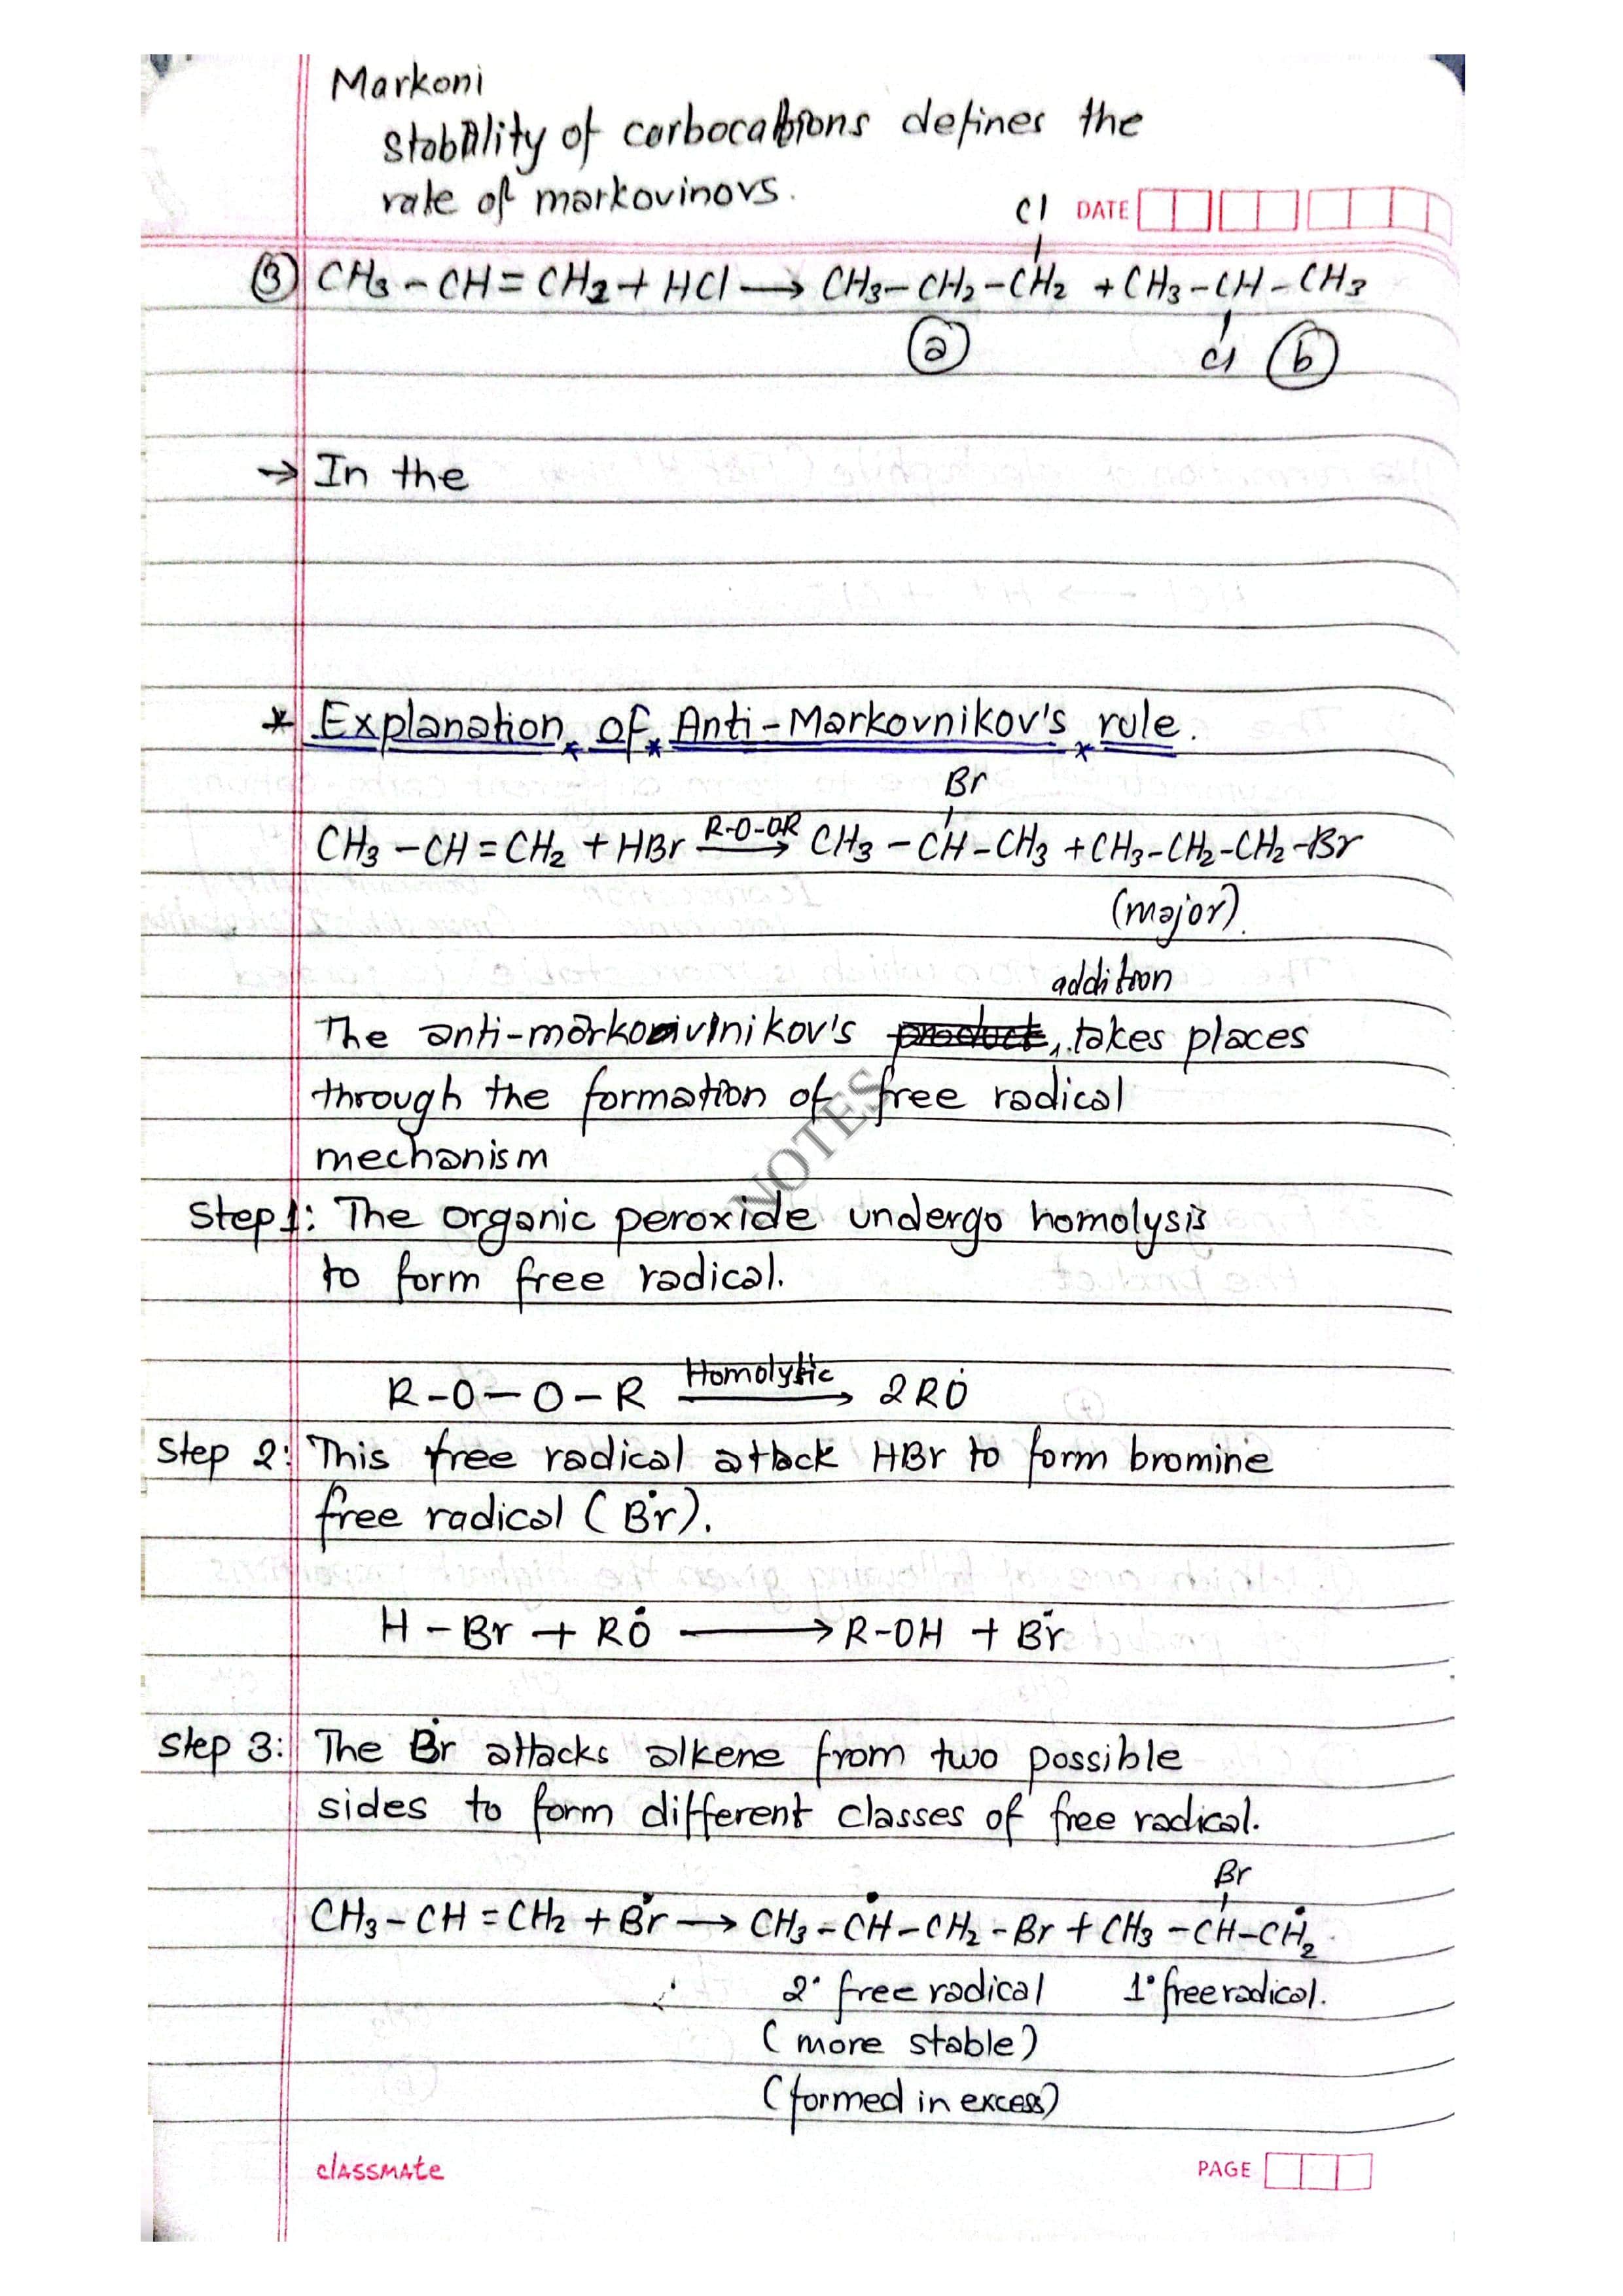 Markoni
stability of carbocations defines the
rate of markovinovs.
DATE
Cl
③ CH₃ – CH = CH₂ + HCl ⟶ CH₃ – CH₂ – CH₂ + CH₃ – CH – CH₃
ⓐ Cl ⓑ
→ In the
* Explanation of Anti-Markovnikov's rule.
Br
CH₃ – CH = CH₂ + HBr R-O-OR ⟶ CH₃ – CH – CH₃ + CH₃ – CH₂ – CH₂ – Br
(major).
addition
The anti-markovinikov's product takes places
through the formation of free radical
mechanism
NOTES
Step 1: The organic peroxide undergo homolysis
to form free radical.
R – O – O – R Homolytic ⟶ 2RȮ
Step 2: This free radical attack HBr to form bromine
free radical (Ḃr).
H – Br + RȮ ⟶ R-OH + Ḃr
Step 3: The Ḃr attacks alkene from two possible
sides to form different classes of free radical.
Br
CH₃ – CH = CH₂ + Ḃr ⟶ CH₃ – ĊH – CH₂ – Br + CH₃ – CH – ĊH₂
2° free radical 1° free radical.
(more stable)
(formed in excess)
classmate
PAGE